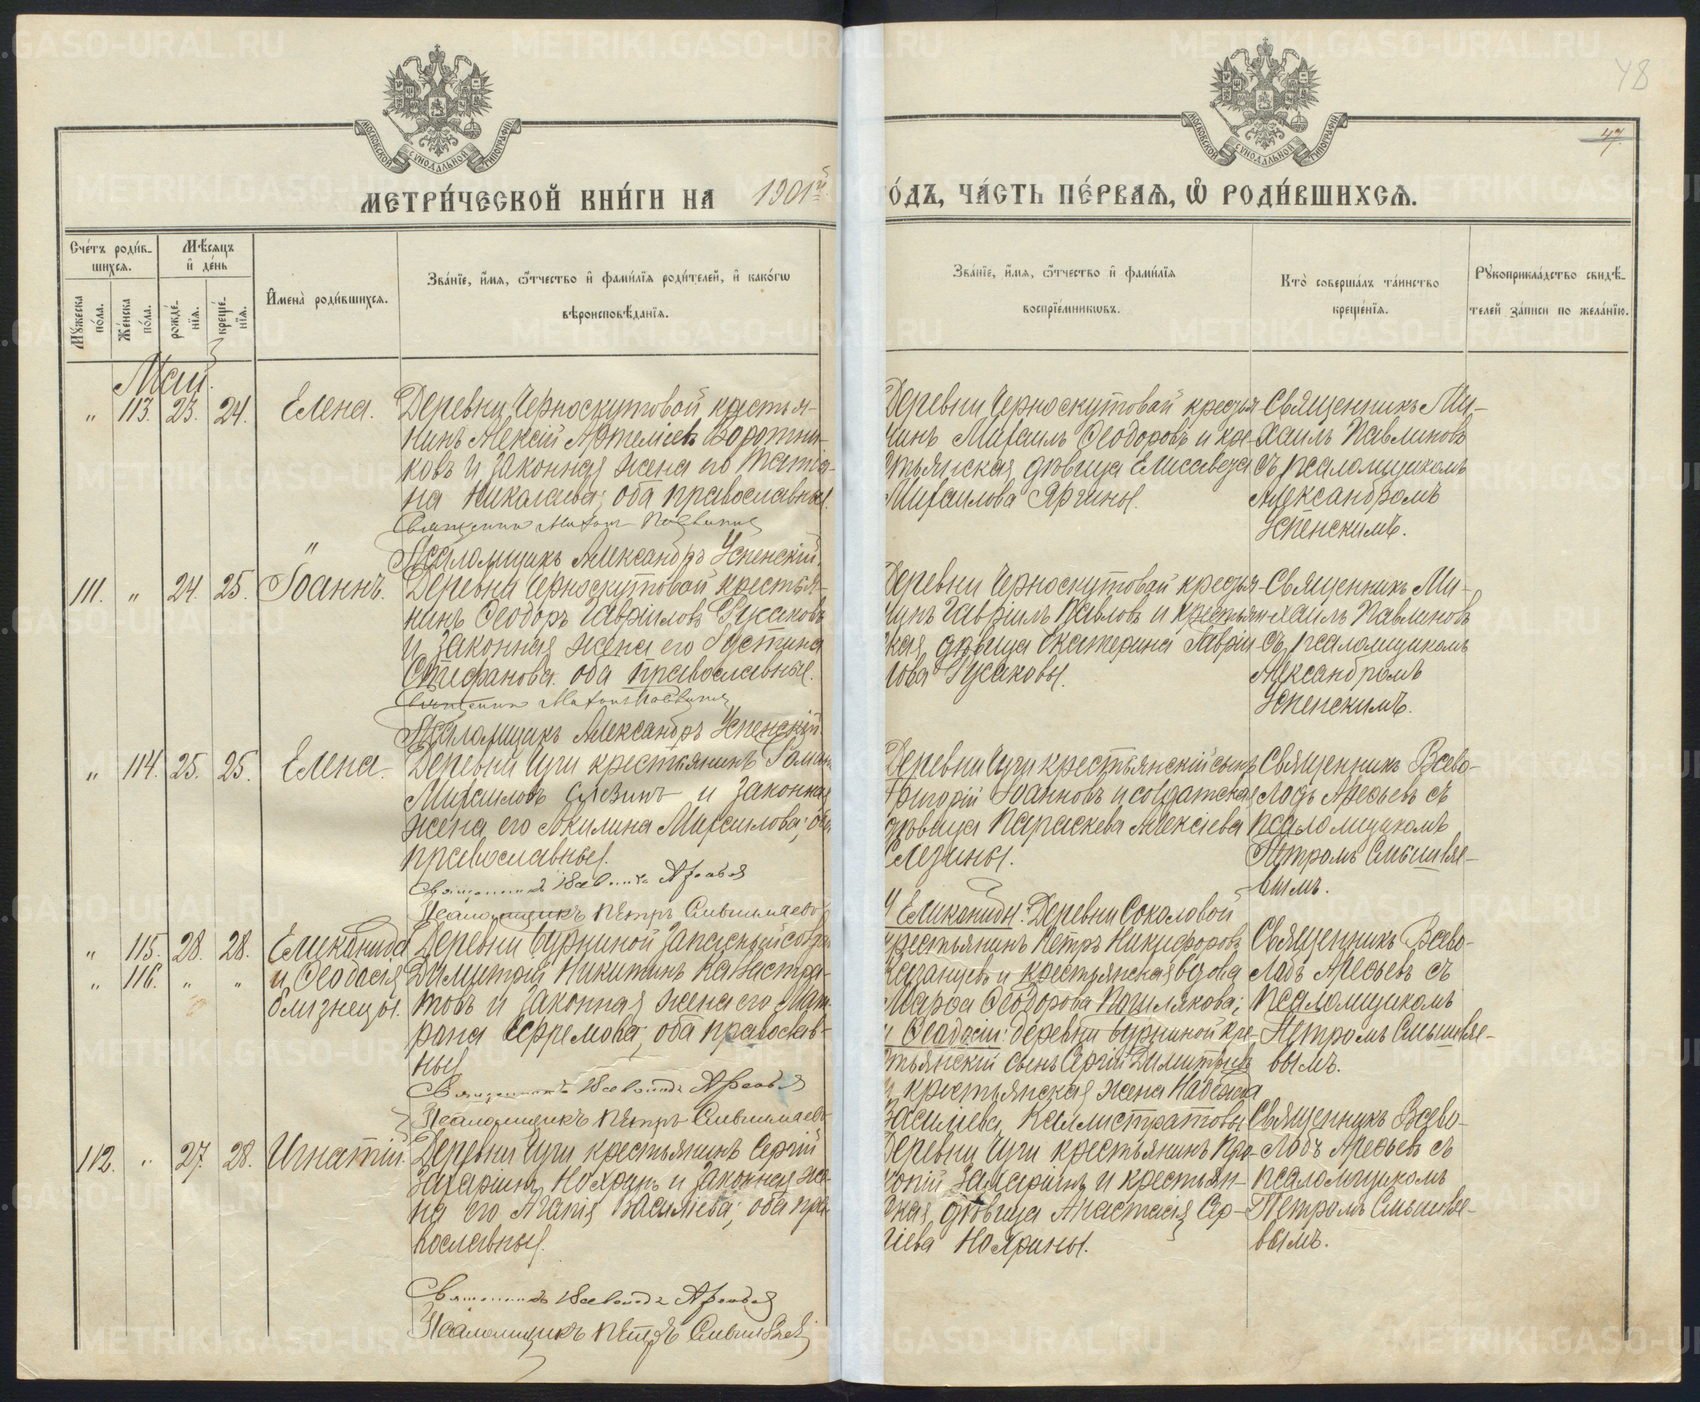 METRIKI.GASO-URAL.RU
48
47
МОСКОВСКОЙ СѴНОДАЛЬНОЙ ТИПОГРАФІИ
МОСКОВСКОЙ СѴНОДАЛЬНОЙ ТИПОГРАФІИ
МЕТРИ́ЧЕСКОЙ КНИ́ГИ НА 1901й
ГО́ДЪ, ЧА́СТЬ ПЕ́РВАѦ, Ѡ҆ РОДИ́ВШИХСѦ.
Сче́тъ роди́в-
шихсѧ.
Мѣ́сѧцъ
и҆ де́нь
Мꙋ́жеска по́ла.
Же́нска по́ла.
рожде́нїѧ.
креще́нїѧ.
И҆мена̀ роди́вшихсѧ.
Зва́нїе, и҆́мѧ, ѻ҆́тчество и҆ фами́лїѧ роди́телей, и҆ како́гѡ
вѣроисповѣ́данїѧ.
Зва́нїе, и҆́мѧ, ѻ҆́тчество и҆ фами́лїѧ
воспрїе́мникѡвъ.
Кто̀ соверша́лъ та́инство
креще́нїѧ.
Рꙋкоприкла́дство свидѣ́-
телей за́писи по жела́нїю.
Май.
„ 113. 23. 24. Елена.
Деревни Черноскутовой, крестья-
нинъ Алексій Артеміевъ Воротни-
ковъ и законная жена его Татіа-
на Николаева; оба православные.
Священникъ Михаилъ Павлиновъ
Псаломщикъ Александръ Успенскій.
Деревни Черноскутовой крестья
нинъ Михаилъ Ѳеодоровъ и кре-
стьянская дѣвица Елисавета
Михаилова Яргины.
Священникъ Ми-
хаилъ Павлиновъ
съ псаломщикомъ
Александромъ
Успенскимъ.
111. „ 24. 25. Іоаннъ.
Деревни Черноскутовой крестья-
нинъ Ѳеодоръ Гавріиловъ Русаковъ
и законная жена его Іустина
Стефанова оба православные.
Священникъ Михаилъ Павлиновъ
Псаломщикъ Александръ Успенскій
Деревни Черноскутовой крестья-
нинъ Гавріилъ Павловъ и крестьян-
ская дѣвица Екатерина Гаврiи
лова Русаковы.
Священникъ Ми-
хаилъ Павлиновъ
съ псаломщикомъ
Александромъ
Успенскимъ.
„ 114. 25. 25. Елена.
Деревни Чуги крестьянинъ Романъ
Михаиловъ и законная
жена его Акилина Михаилова; оба
православные.
Священникъ Всеволодъ Арефьевъ
Псаломщикъ Петръ Смышляевъ
Деревни Чуги крестьянскій сынъ
Григорій Іоанновъ и солдатская
дѣвица Параскева Алексіева
Священникъ Всево-
лодъ Арефьевъ съ
псаломщикомъ
Петромъ Смышляе-
вымъ.
„ 115. 28. 28. Еликонида
„ 116. „ „ и Ѳеодосія
близнецы.
Деревни Буриной запасный солдатъ
Димитрій Никитинъ Каллистра-
товъ и законная жена его Мат-
рона Ефремова; оба православ-
ные
Священникъ Всеволодъ Арефьевъ
Псаломщикъ Петръ Смышляевъ
У Еликониды: Деревни Соколовой
крестьянинъ Петръ Никифоровъ
Казанцевъ и крестьянская вдова
Марѳа Ѳеодорова Пошлякова;
и Ѳеодосіи: деревни Буриной кре-
стьянскій сынъ Сергій Димитріевъ
и крестьянская жена Надежда
Василіева Каллистратовы
Священникъ Всево-
лодъ Арефьевъ съ
псаломщикомъ
Петромъ Смышляе-
вымъ.
112. „ 27. 28. Игнатій.
Деревни Чуги крестьянинъ Сергій
Захаріинъ Нохринъ и законная же-
на его Агапія Василіева; оба пра-
вославные.
Священникъ Всеволодъ Арефьевъ
Псаломщикъ Петръ Смышляевъ
Деревни Чуги крестьянинъ Про-
копій Захаріинъ и крестьян-
ская дѣвица Анастасія Сер-
гіева Нохрины.
Священникъ Всево-
лодъ Арефьевъ съ
псаломщикомъ
Петромъ Смышляе-
вымъ.